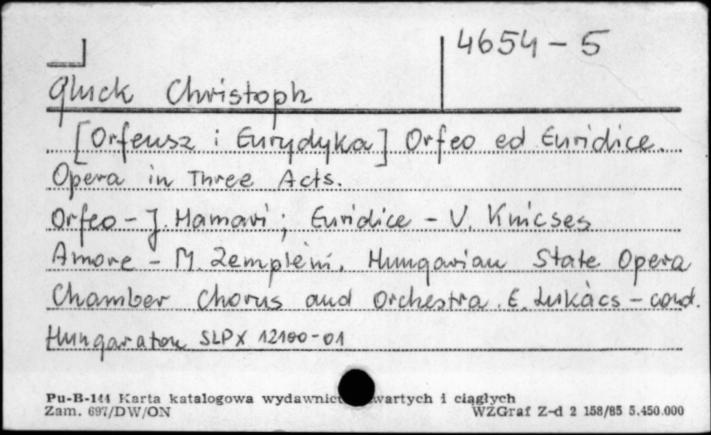 4654-5
Gluck Christoph
[Orfeusz i Eurydyka] Orfeo ed Euridice.
Opera in Three Acts.
Orfeo - J. Hamari; Euridice - V. Kincses
Amore - M. Zempléni. Hungarian State Opera
Chamber Chorus and Orchestra. E. Lukács - cond.
Hungaraton SLPX 12100-01
Pu-B-144 Karta katalogowa wydawnict wartych i ciągłych
Zam. 697/DW/ON WZGraf Z-d 2 158/85 5.450.000